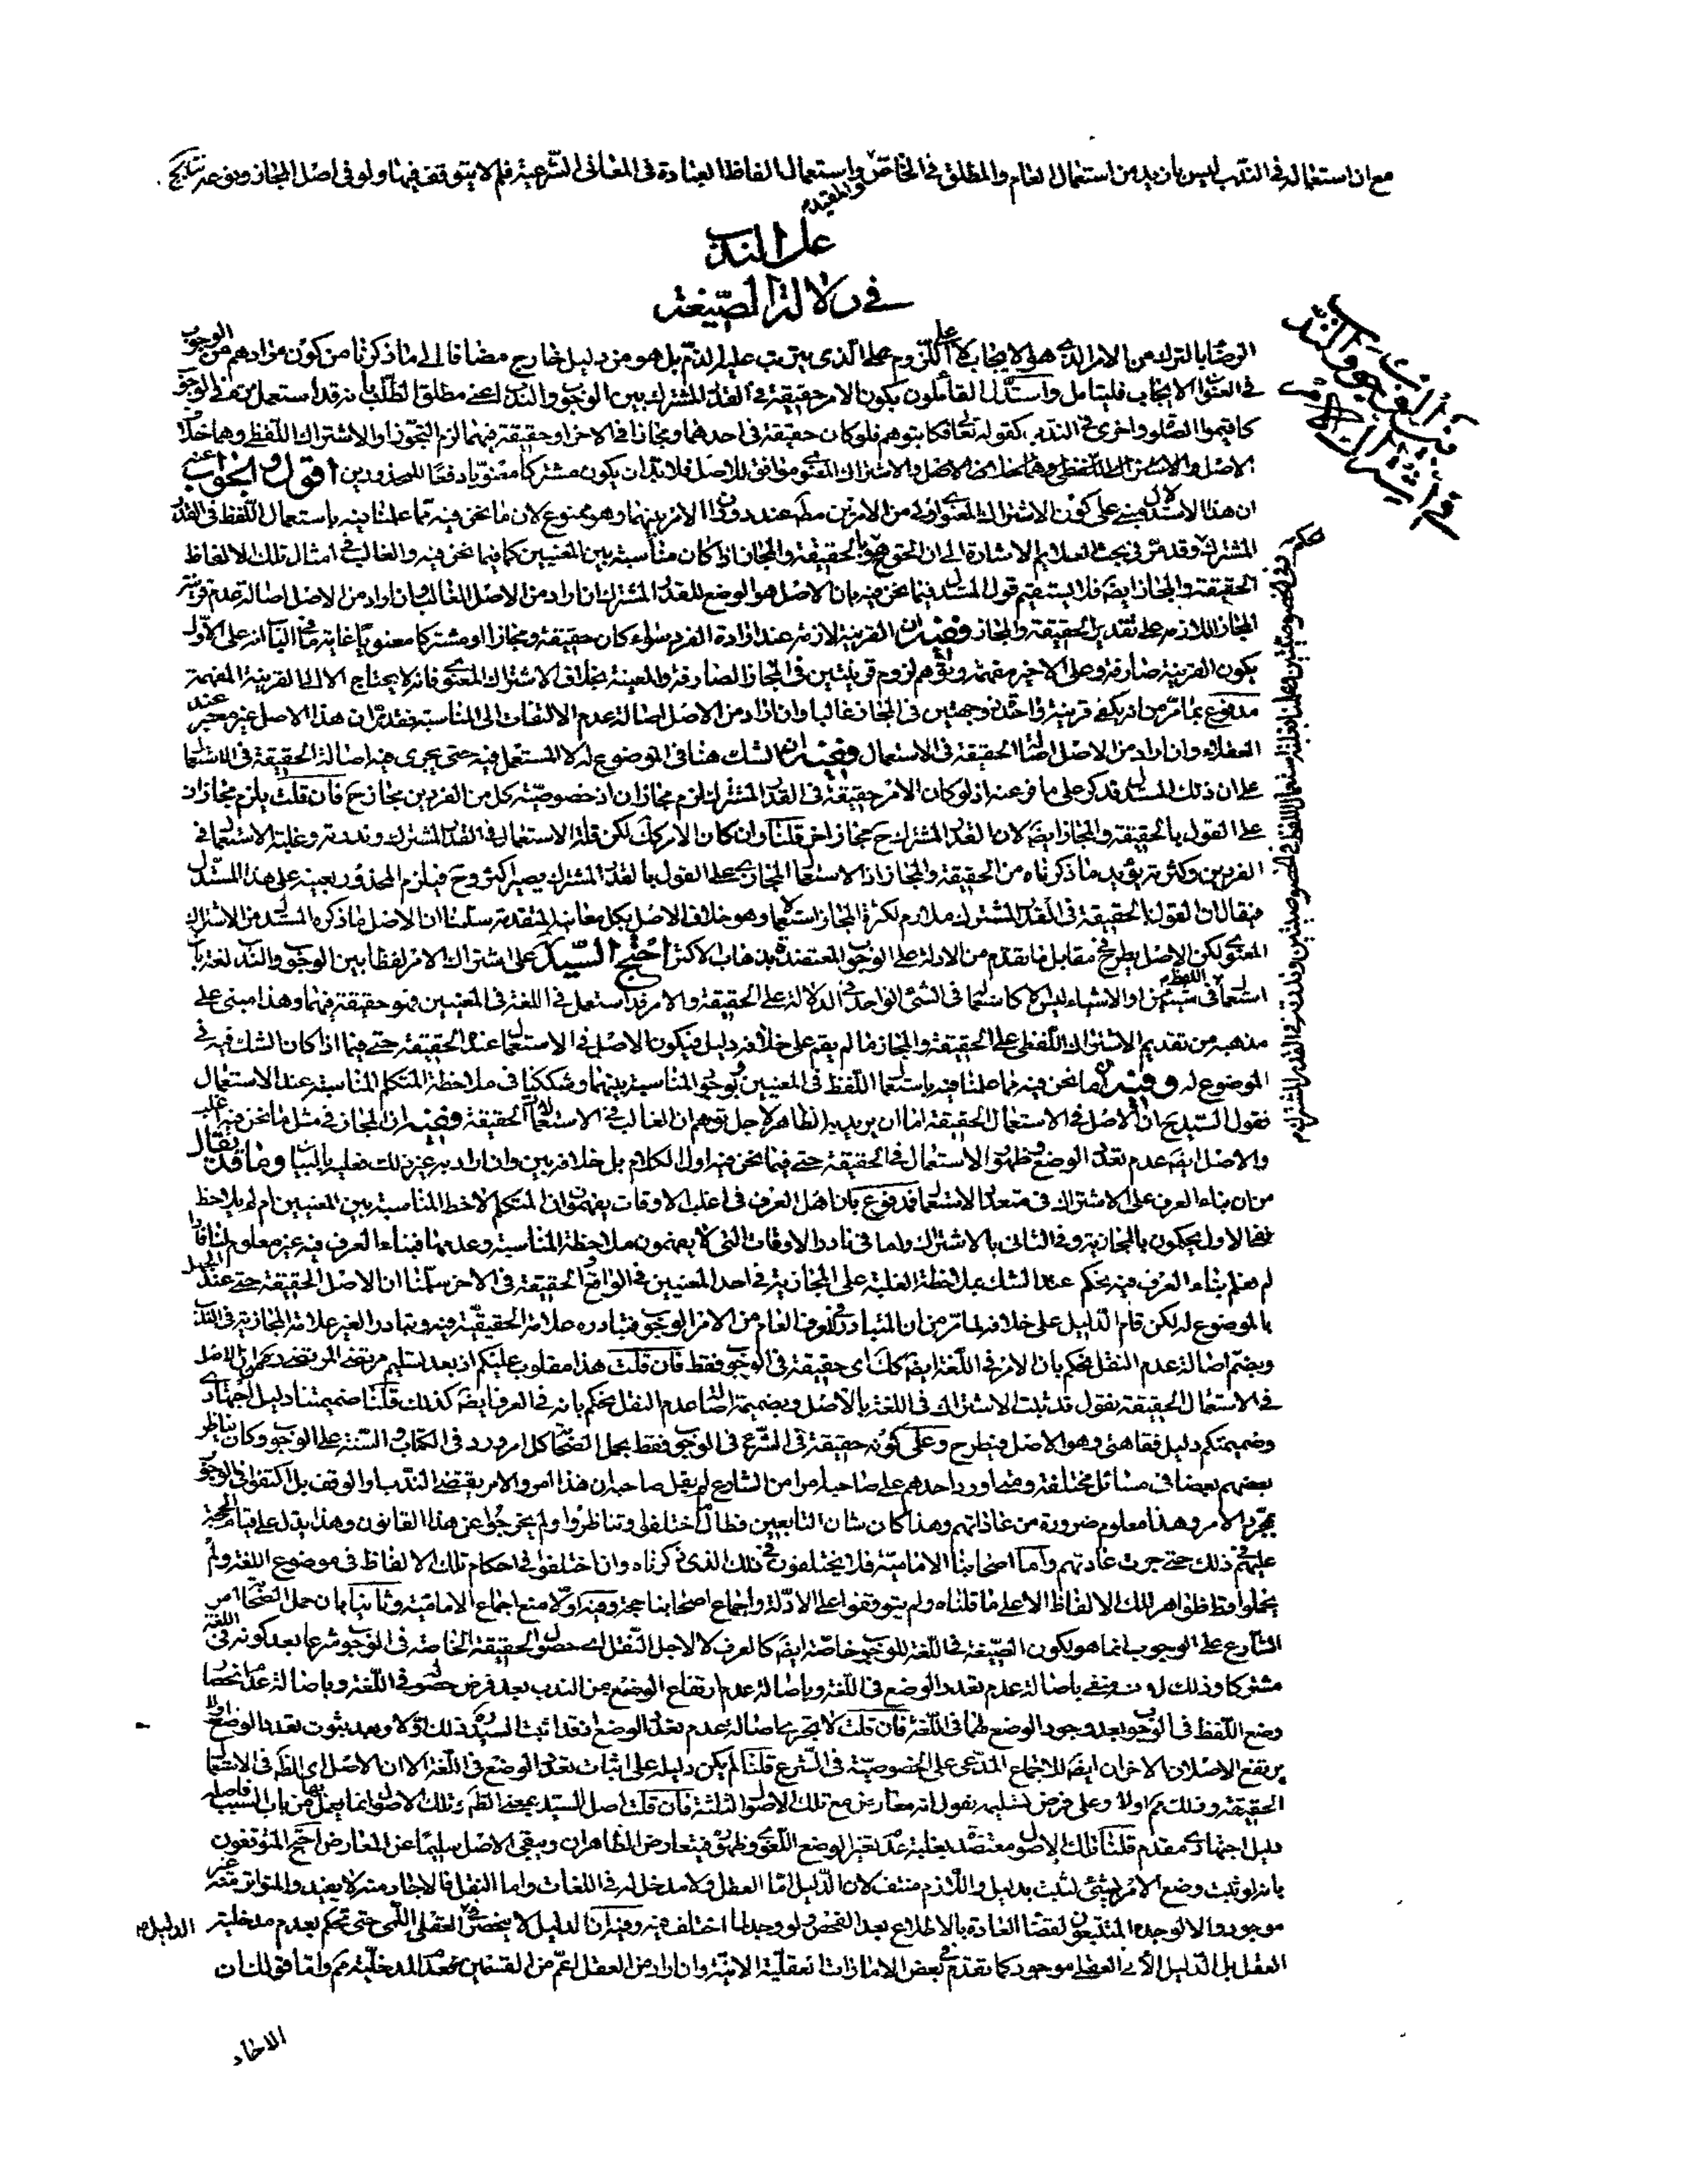 مع ان استعماله في الندب ليس بازيد من استعمال العام والمطلق في الخاص والمقيد واستعمال الفاظ العبادة في المعاني الشرعية فلم لا يتوقف فيها ولو في اصل المجاز وبوعه
في دلالة الصيغة
على الندب
الرضا بالترك من الامر الذي هو الايجاب لا على اللزوم على الذي يترتب عليه الذم بل هو من دليل خارج مضافا الى ما ذكرنا من كون مرادهم من الوجوب
في العنوان الايجاب فليتامل واستدل القائلون بكون الامر حقيقة في القدر المشترك بين الوجوب والندب اعني مطلق الطلب بانه قد استعمل تارة في الوجوب
كاقيموا الصلوة واخرى في الندب كقوله تعالى فكاتبوهم فلو كان حقيقة في احدهما ومجازا في الاخر او حقيقة فيهما لزم التجوز او الاشتراك اللفظي وهما خلاف
الاصل والاشتراك المعنوي موافق للاصل فلا بد ان يكون مشتركا معنويا دفعا للمحذورين اقول والجواب عنه
ان هذا الاستدلال مبني على كون الاشتراك المعنوي اولى من الامرين مط عند دوران الامر بينهما وهو ممنوع لان ما نحن فيه مما علمنا فيه باستعمال اللفظ في القدر
المشترك وقد مر في بحث العلائم الاشارة الى ان الحق هو الحقيقة والمجاز اذ كان مناسبة بين المعنيين كما فيما نحن فيه والغالب في امثال تلك الالفاظ
الحقيقة والمجاز ايضا فلا يستقيم قول المستدل فيما نحن فيه بان الاصل هو الوضع للقدر المشترك ان اراد من الاصل الغالب وان اراد من الاصل اصالة عدم قرينة
المجاز اللازمة على تقدير الحقيقة والمجاز ففيه ان القرينة لازمة عند ارادة الفرد سواء كان حقيقة ومجازا او مشتركا معنويا غاية ما في الباب انه على الاول
يكون القرينة صارفة وعلى الاخير مفهمة وتوهم لزوم قرينتين في المجاز الصارفة والمعينة بخلاف الاشتراك المعنوي فانه لا يحتاج الا الى القرينة المفهمة
مدفوع بما مر من انه يكفي قرينة واحدة ذو جهتين في المجاز غالبا وان اراد من الاصل اصالة عدم الالتفات الى المناسبة فقد مر ان هذا الاصل غير معتبر عند
العقلاء وان اراد من الاصل اصالة الحقيقة في الاستعمال ففيه ان الشك هنا في الموضوع له لا المستعمل فيه حتى يجري فيه اصالة الحقيقة في الاستعمال
على ان ذلك المستدل قد كر على ما فر عنه اذ لو كان الامر حقيقة في القدر المشترك لزم مجازان اذ خصوصية كل من الفردين مجاز ح فان قلت يلزم مجازان
على القول بالحقيقة والمجاز ايضا لان القدر المشترك ح مجاز اخر قلنا وان كان الامر كك لكن قلة الاستعمال في القدر المشترك وندرته وغلبة الاستعمال في
الفردين وكثرته يؤيد ما ذكرناه من الحقيقة والمجاز اذ الاستعمال المجازي على القول بالقدر المشترك يصير اكثر وح فيلزم المحذور بعينه على هذا المستدل
فيقال ان القول بالحقيقة في القدر المشترك ملازم لكثرة المجاز استعمالا وهو خلاف الاصل بكل معانيه المتقدمة سلمنا ان الاصل ما ذكره المستدل من الاشتراك
المعنوي لكن الاصل يطرح في مقابل ما تقدم من الادلة على الوجوب المعتضدة بذهاب الاكثر احتج السيد على اشتراك الامر لفظا بين الوجوب والندب لغة بان
استعمال اللفظ في شيئين او الاشياء ليس الا كاستعماله في الشئ الواحد في الدلالة على الحقيقة والامر قد استعمل في اللغة في المعنيين فهو حقيقة فيهما وهذا مبني على
مذهبه من تقديم الاشتراك اللفظي على الحقيقة والمجاز ما لم يقم على خلافه دليل فيكون الاصل في الاستعمال عنده الحقيقة حتى فيما اذا كان الشك فيه في
الموضوع له وفيه ان ما نحن فيه مما علمنا فيه باستعمال اللفظ في المعنيين وبوجود المناسبة بينهما وشككنا في ملاحظة المتكلم المناسبة عند الاستعمال
فقول السيد ح ان الاصل في الاستعمال الحقيقة اما ان يريد به الظاهر لاجل توهم ان الغالب في الاستعمالات الحقيقة ففيه ان المجاز في مثل ما نحن فيه اغلب
والاصل ايضا عدم تعدد الوضع وظهور الاستعمال في الحقيقة حتى فيما نحن فيه اول الكلام بل خلافه بين وان اراد به غير ذلك فعليه بالبيان وما قد يقال
من ان بناء العرف على الاشتراك في متعدد الاستعمال فمدفوع بان اهل العرف في اغلب الاوقات يفهمون ان المتكلم لاحظ المناسبة بين المعنيين ام لم يلاحظ
ففي الاول يحكمون بالمجازية وفي الثاني بالاشتراك واما في نادر الاوقات التي لا يفهمون ملاحظة المناسبة وعدمها فبناء العرف فيه غير معلوم لنا فاذا
لم نعلم بناء العرف فيه نحكم عند الشك بملاحظة الغلبة على المجازية في احد المعنيين في الواقع والحقيقة في الاخر سلمنا ان الاصل الحقيقة حتى عند الجهل
بالموضوع له لكن قام الدليل على خلافه لما مر من ان المتبادر في العرف العام من الامر الوجوب فتبادره علامة الحقيقية فيه وتبادر الغير علامة المجازية في الندب
وبضم اصالة عدم النقل نحكم بان الامر في اللغة ايضا كك اي حقيقة في الوجوب فقط فان قلت هذا مقلوب عليكم اذ بعد تسليم
في الاستعمال الحقيقة نقول قد ثبت الاشتراك في اللغة بالاصل وبضميمة اصالة عدم النقل نحكم بانه في العرف ايضا كذلك قلنا ضميمتنا دليل اجتهادي
وضميمتكم دليل فقاهتي وهو الاصل فيطرح وعلى كونه حقيقة في الشرع في الوجوب فقط بحمل الصحابة كل امر ورد في الكتاب والسنة على الوجوب وكان يناظر
بعضهم بعضا في مسائل مختلفة ومتى اورد احدهم على صاحبه امرا من الشارع لم يقل صاحبه ان هذا امر والامر يقتضي الندب او الوقف بل اكتفوا في الوجوب
بمجرد الامر وهذا معلوم ضرورة من عاداتهم وهذا كان شان التابعين فطال ما اختلفوا وتناظروا ولم يخرجوا عن هذا القانون وهذا يدل على قيام الحجة
عليهم في ذلك حتى جرت عادتهم واما اصحابنا الامامية فلا يختلفون في ذلك الذي ذكرناه وان اختلفوا في احكام تلك الالفاظ في موضوع اللغة ولم
يحملوا قط ظواهر تلك الالفاظ الا على ما قلناه ولم يتوقفوا على الادلة واجماع اصحابنا حجة وفيه اولا منع اجماع الامامية وثانيا بان حمل الصحابة امر
الشارع على الوجوب انما هو بكون الصيغة في اللغة للوجوب خاصة ايضا كالعرف لا لاجل النقل اي حصول الحقيقة الخاصة في الوجوب شرعا بعد كونه في اللغة
مشتركا وذلك لان منفي باصالة عدم تعدد الوضع في اللغة وباصالة عدم ارتفاع الوضع عن الندب بعد فرض حصوله في اللغة وباصالة عدم انحصار
وضع اللفظ في الوجوب بعد وجود الوضع لهما في اللغة فان قلت لا يجري اصالة عدم تعدد الوضع فقد اثبت السيد ره ذلك اولا وبعد ثبوت تعدد الوضع اولا
يرتفع الاصلان الاخران ايضا للاجماع المدعى على الخصوصية في الشرع قلنا لم يكن دليله على اثبات تعدد الوضع في اللغة الا ان الاصل اي الظهر في الاستعمال
الحقيقة وذلك مم اولا وعلى فرض تسليمه نقول انه معارض مع تلك الاصول الثلثة فان قلت اصل السيد بمعنى الظهر وتلك الاصول انما يعمل بها من باب السبب فاصله
دليل اجتهادي مقدم قلنا تلك الاصول معتضد بغلبة عدم تغير الوضع اللغوي وظهوره فيتعارض الظاهران ويبقى الاصل سليما عن المعارض احتج المتوقفون
بانه لو ثبت وضع الامر لشئ لثبت بدليل واللازم منتف لان الدليل اما العقل ولا مدخل له في اللغات واما النقل فالاحاد منه لا يفيد والمتواتر منه غير
موجود والا لوجده المتتبعون لقضاء العادة بالاطلاع بعد الفحص ولو وجد لما اختلف فيه وفيه ان الدليل لا ينحصر في العقلي اللمي حتى تحكم بعدم مدخلية الدليل
العقل بل الدليل الاني العقلي موجود كما تقدم في بعض الامارات العقلية الانية وان اراد من العقل اعم من القسمين فعدم المدخلية مم واما قولك ان
الاحاد